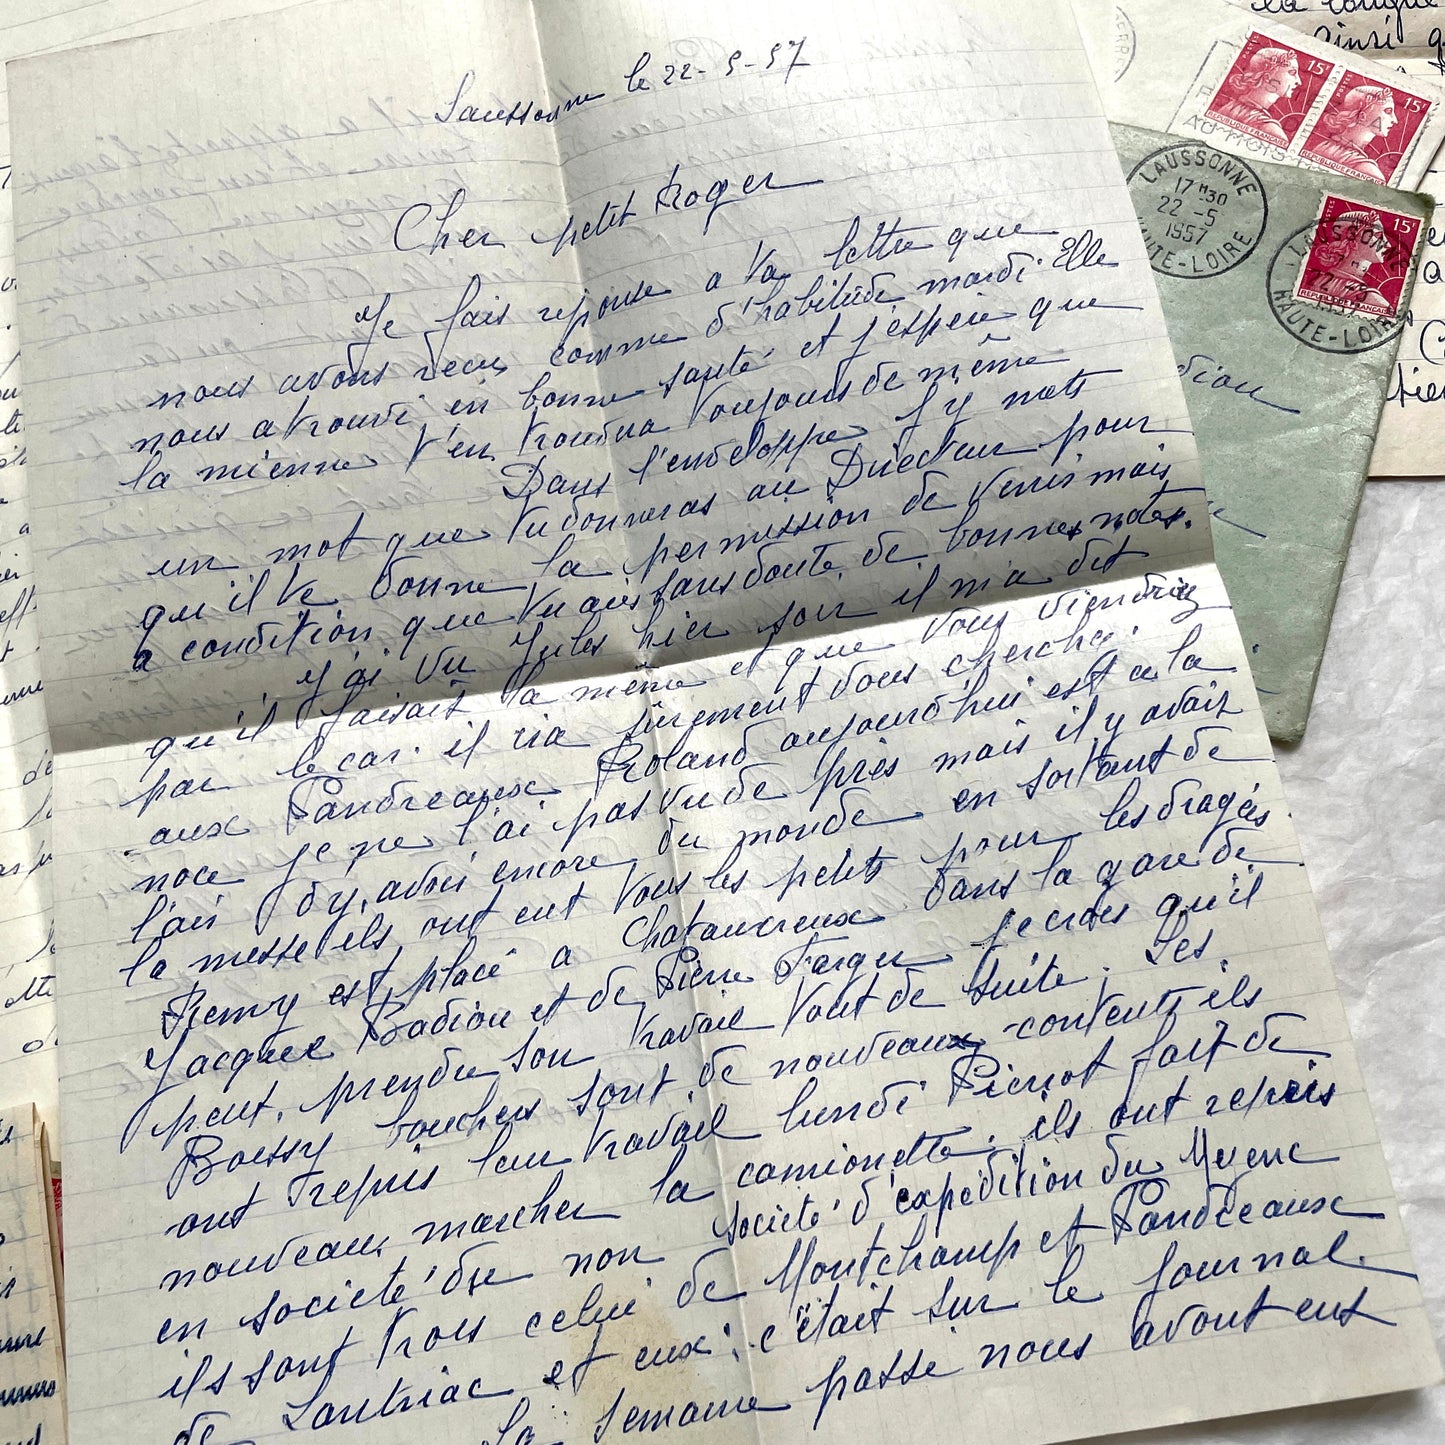 Laussonne le 22-5-57
Cher petit Roger
Je fais reponse a ta lettre que
nous avons recus comme d'habitude mardi Elle
nous a trouvé en bonne santé et j'espère que
la mienne t'en trouvera toujours de même
Dans l'enveloppe j'y mets
un mot que tu donneras au Directeur pour
qu'il te donne la permission de venir mais
a condition que tu ais sans doute de bonnes notes.
J'ai vu Jules hier soir il m'a dit
qu'il faisait la même et que vous viendriez
par le car il ira sûrement vous cherché
aux Pandreaux Roland aujourd'hui est a la
noce je ne l'ai pas vu de près mais il y avait
l'air d'y avoir encore du monde en sortant de
la messe ils ont eut tous les petits pour les dragés.
Remy est placé a Chataucreux dans la gare de
Jacques Badiou et de Pierre Farger je crois qu'il
peut prendre son travail tout de suite. Les
Boissy bouchers sont de nouveaux contents ils
ont repris leur travail lundi Pierrot fait de
nouveau marcher la camionette; ils ont repris
en société du non société d'expedition du Meyenc
ils sont trois celui de Montchamp et Pandreaux
de Lantriac et eux; c'était sur le journal.
La semaine passé nous avont eut
LAUSSONNE
17 H 30
22 -5
1957
HAUTE-LOIRE
LAUSSONNE
22 -5
HAUTE-LOIRE
POSTES
15F
REPUBLIQUE FRANCAISE
15F
REPUBLIQUE FRANCAISE
POSTES
15F
REPUBLIQUE FRANCAISE
AU MOIS
ainsi